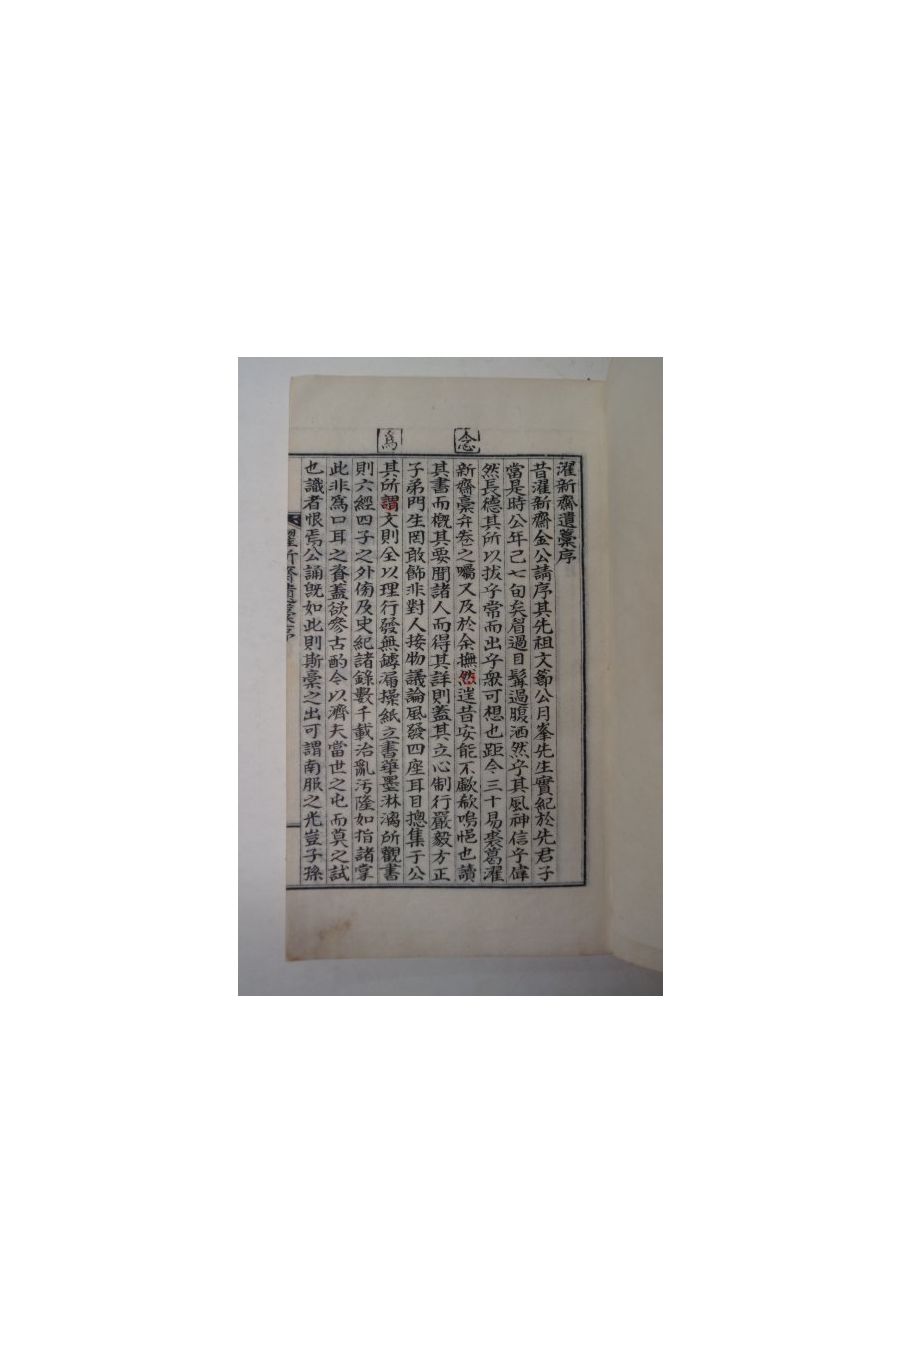 念
爲
濯新齋遺藁序
昔濯新齋金公請序其先祖文節公月峯先生實紀於先君子
當是時公年已七旬矣眉過目髯過腹洒然乎其風神信乎偉
然長德其所以拔乎常而出乎衆可想也距今三十易裘葛濯
新齋藁弁卷之囑又及於余撫然迋昔安能不歔欷嗚悒也讀
其書而槪其要聞諸人而得其詳則蓋其立心制行嚴毅方正
子弟門生罔敢飾非對人接物議論風發四座耳目摠集于公
其所謂文則全以理行發無罅漏操紙立書華墨淋漓所觀書
則六經四子之外傍及史紀諸錄數千載治亂汚隆如指諸掌
此非爲口耳之資蓋欲參古酌今以濟夫當世之屯而莫之試
也識者恨焉公誦旣如此則斯藁之出可謂南服之光豈子孫
濯新齋遺藁序